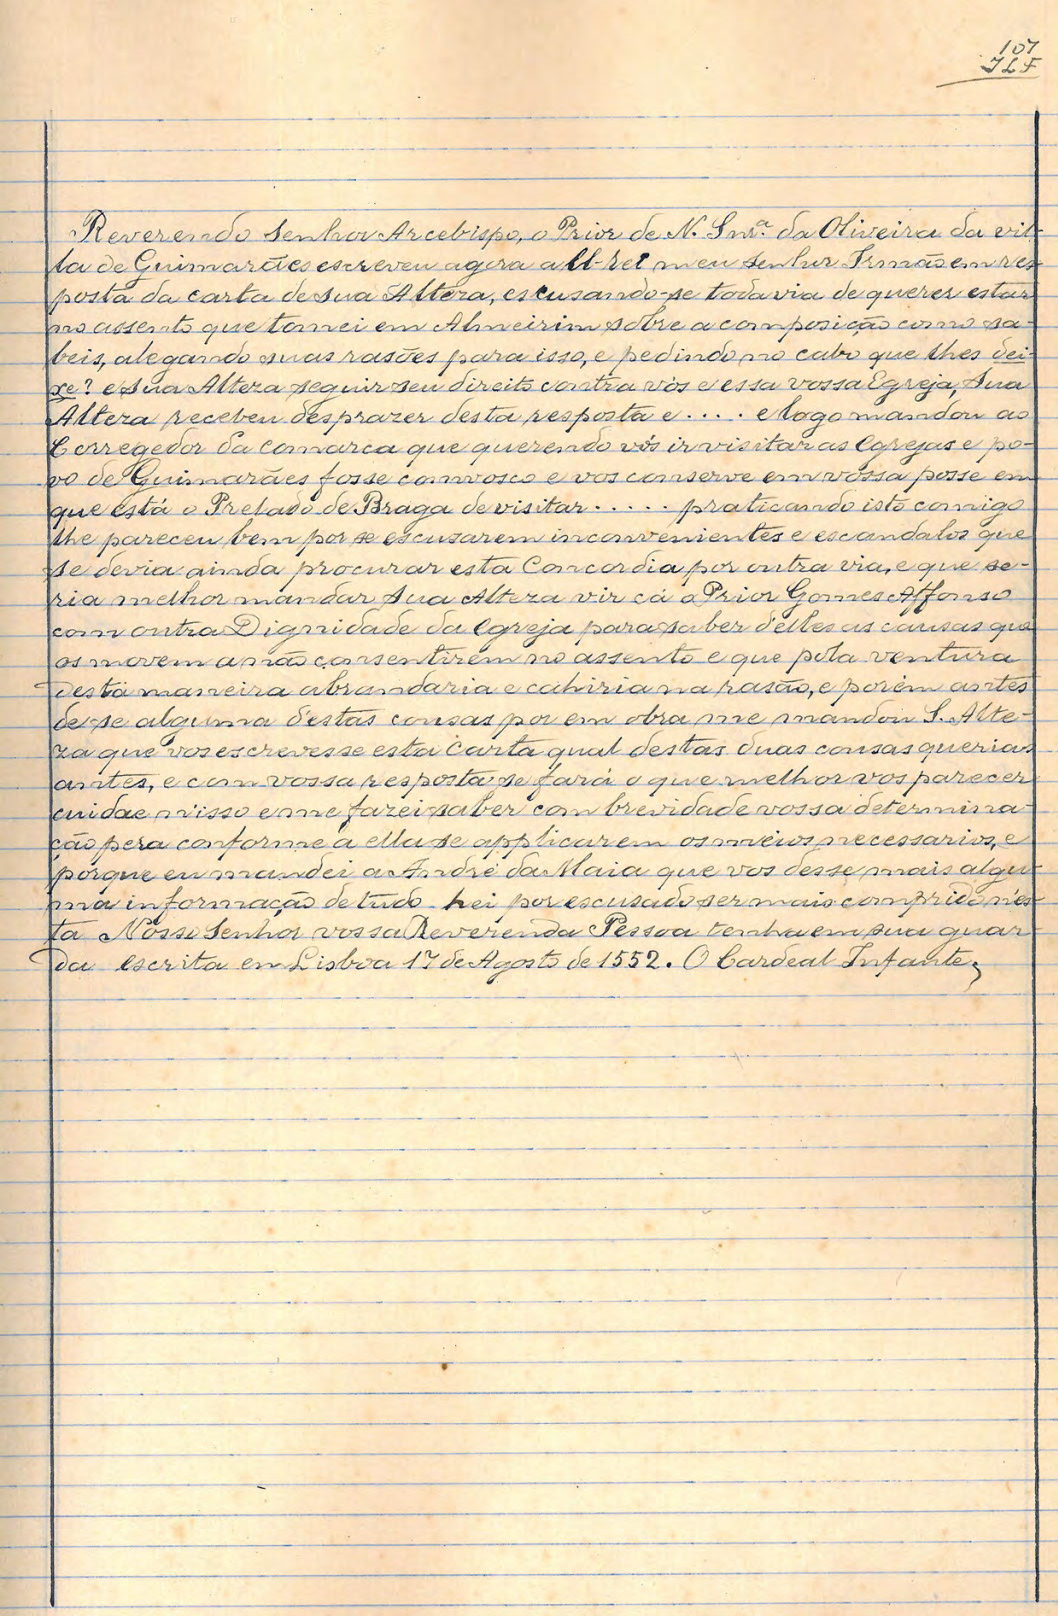 107
JLF
Reverendo Senhor Arcebispo, o Prior de N. Snr.ª da Oliveira da vil-
la de Guimarães escreveu agora a El-Rei meu Senhor Irmão em res-
posta da carta de Sua Alteza, escusando-se todavia de querer estar
no assento que tomei em Almeirim sobre a composição como sa-
beis, alegando suas rasões para isso, e pedindo no cabo que lhes dei-
xe? e Sua Alteza seguir seu direito contra vós e essa vossa Egreja, Sua
Alteza recebeu desprazer desta resposta e . . . . e logo mandou ao
Corregedor da comarca que querendo vós ir visitar as Egrejas e po-
vo de Guimarães fosse comvosco e vos conserve em vossa posse em
que está o Prelado de Braga de visitar . . . . . praticando isto comigo
lhe pareceu bem por se escusarem inconvenientes e escandalos que
se devia ainda procurar esta Concordia por outra via, e que se-
ria melhor mandar Sua Alteza vir cá o Prior Gomes Affonso
com outra Dignidade da Egreja para saber d'elles as causas que
os movem a não consentirem no assento e que pola ventura
desta maneira abrandaria e cahiria na rasão, e porém antes
de se alguma d'estas cousas por em obra me mandou S. Alte-
za que vos escrevesse esta carta qual destas duas cousas querias
antes, e com vossa resposta se fará o que melhor vos parecer
cuidae n'isso e me fazei saber com brevidade vossa determina-
ção pera conforme a ella se applicarem os meios necessarios, e
porque eu mandei a André da Maia que vos desse mais algu-
ma informação de tudo hei por escusado ser mais comprido n'es-
ta Nosso Senhor vossa Reverenda Pessoa tenha em sua guar-
da escrita em Lisboa 17 de Agosto de 1552. O Cardeal Infante,